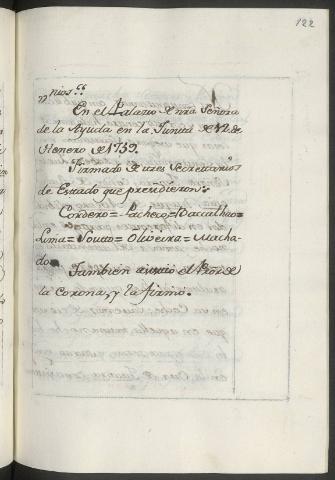 122
nios.
En el Palacio de nrã Señora
de la Ayuda en la Junta de 12. de
Henero de 1759.
Firmado de tres Secretarios
de Estado que presidieron.
Cordero = Pacheco = Baccalhao =
Lima = Soutto = Oliveira = Macha-
do =
Tambien assistio el Pror. de
la Corona, y la firmó.